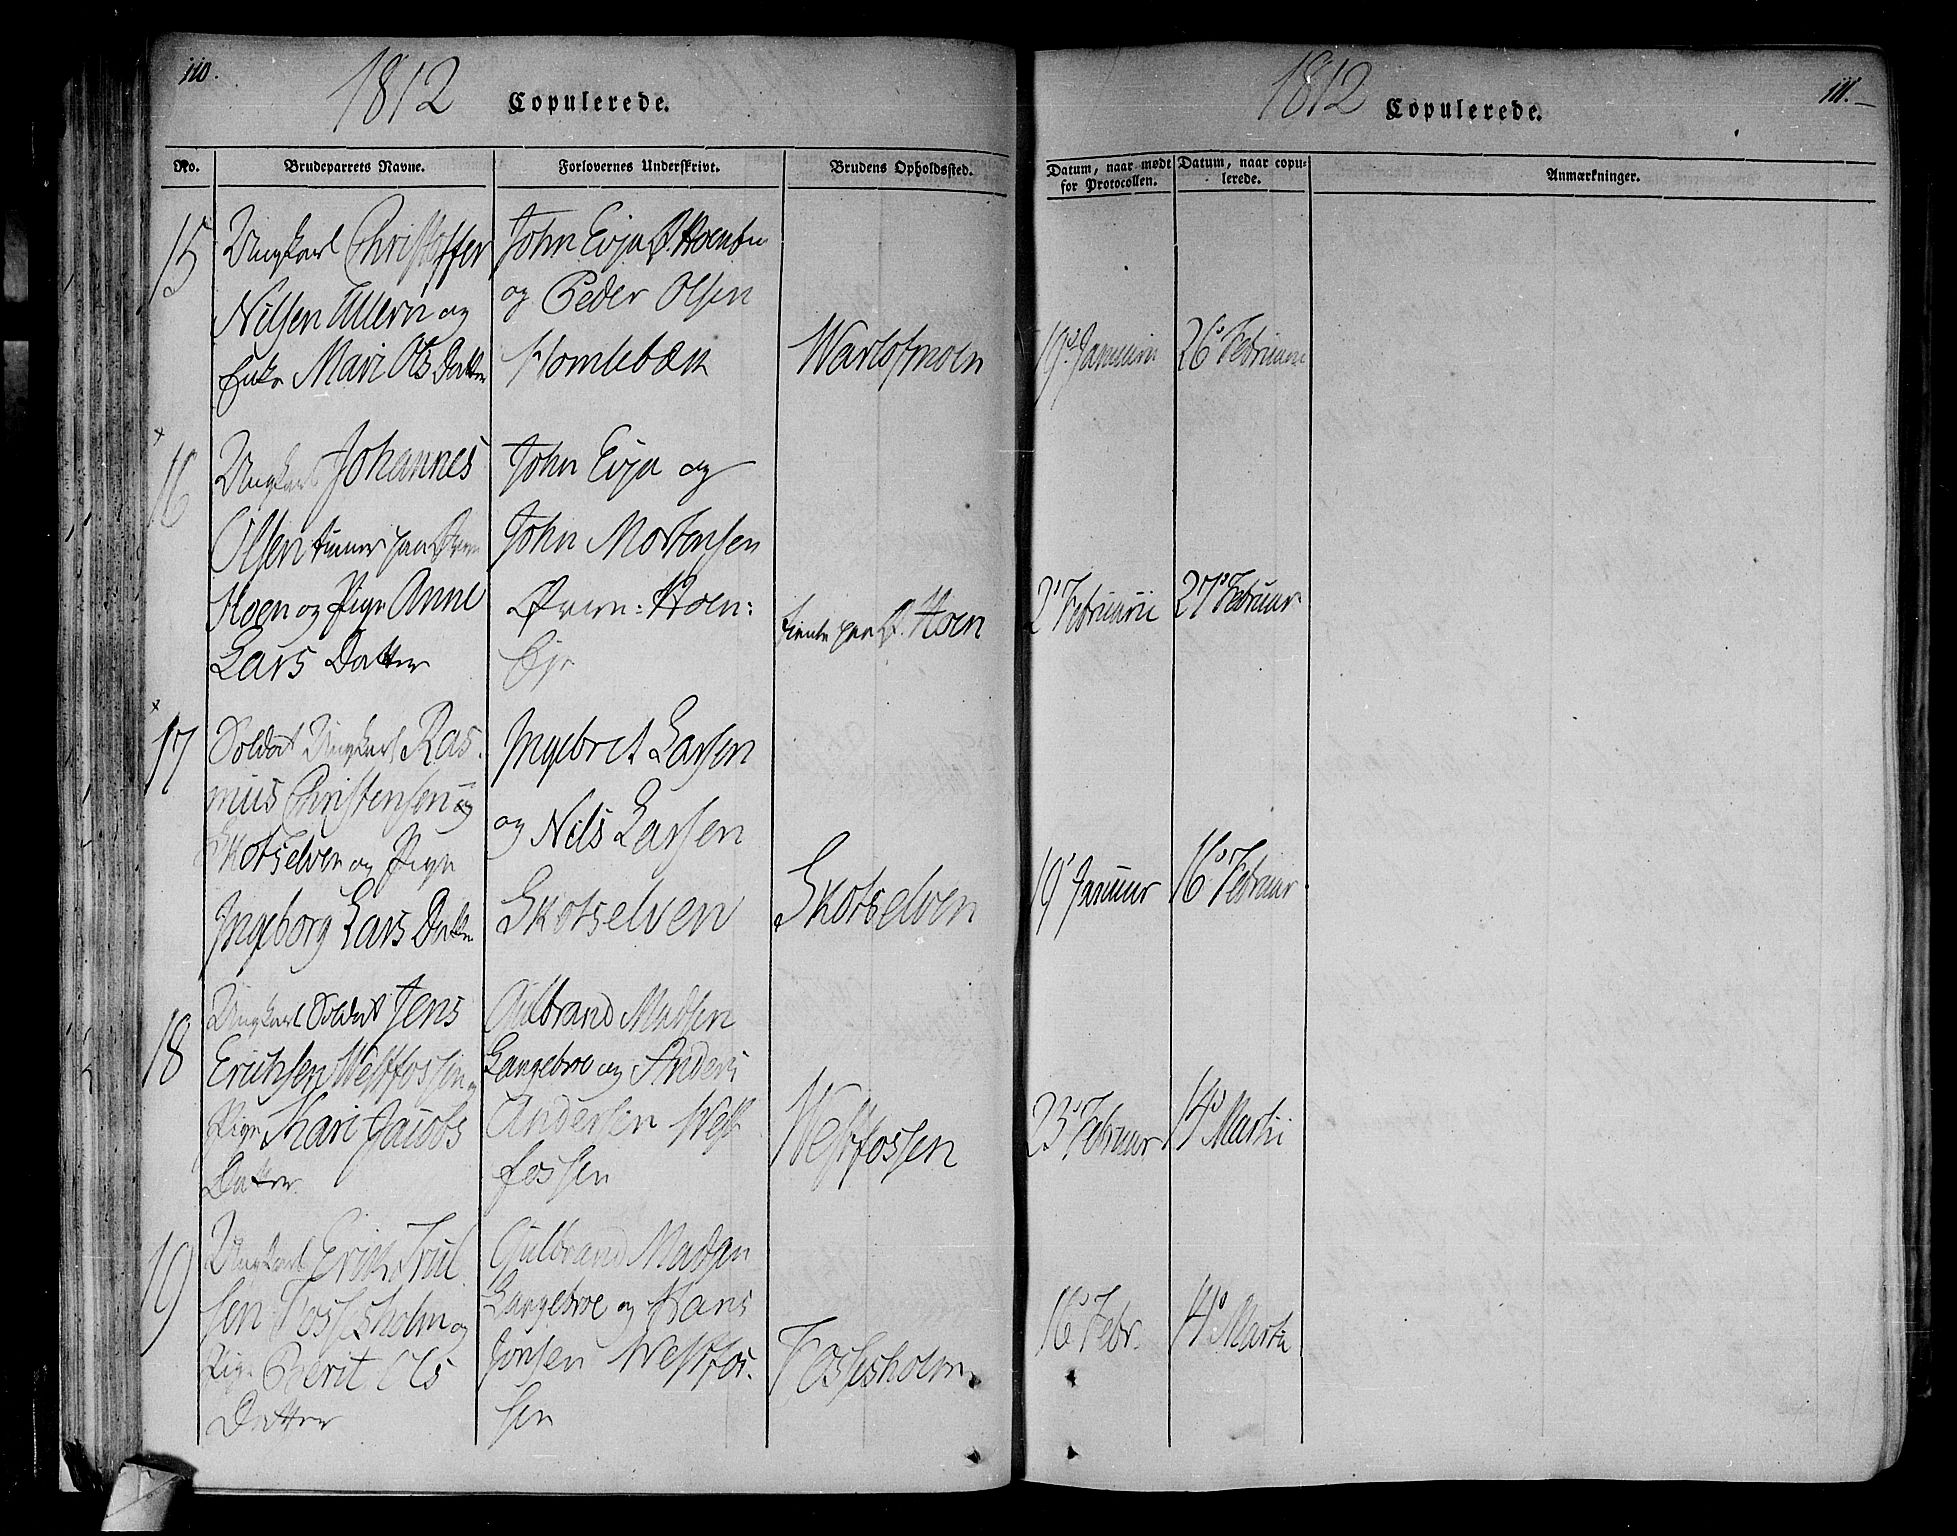 110.
1812 Copulerede.
No. Brudeparrets Navne. Forlovernes Underskrivt. Brudens Opholdssted.
15
Ungkarl Christoffer
Nilsen Ullern og
Enke Mari Ols Datter
John Evja
og Peder Olsen
Homlebæk
Warlosmoen
16
Ungkarl Johannes
Olsen tiener paa Øvre
Hoen og Pige Anne
Lars Datter
John Evja og
John Mortensen
Øvern: Hoen:
Eje
tiente paa Ø. Hoen
17
Soldat Ungkarl Ras
mus Christensen og
Skotselven og Pige
Ingeborg Lars Datter
Ingebret Larsen
og Nils Larsen
Skotselven
Skotselven
18
Ungkarl Soldat Jens
Erichsen Westfossen og
Pige Kari Jacobs
Datter
Gulbrand Madsen
Langebroe og Anders
Andersen West
fossen
Westfossen
19
Ungkarl Erik Trul
sen Fossesholm og
Pige Berit Ols
Datter
Gulbrand Madsen
Langebroe og Hans
Jonsen Westfos.
sen
Fossesholm
1812 Copulerede.
111.
Datum, naar mødt for Protocollen. Datum, naar copulerede. Anmærkninger.
19 Januarii 26 Februarii
2 Februarii 27 Februar
19 Januar 16 Februar
23 Februar 14 Martii
16 Febr. 14 Martii